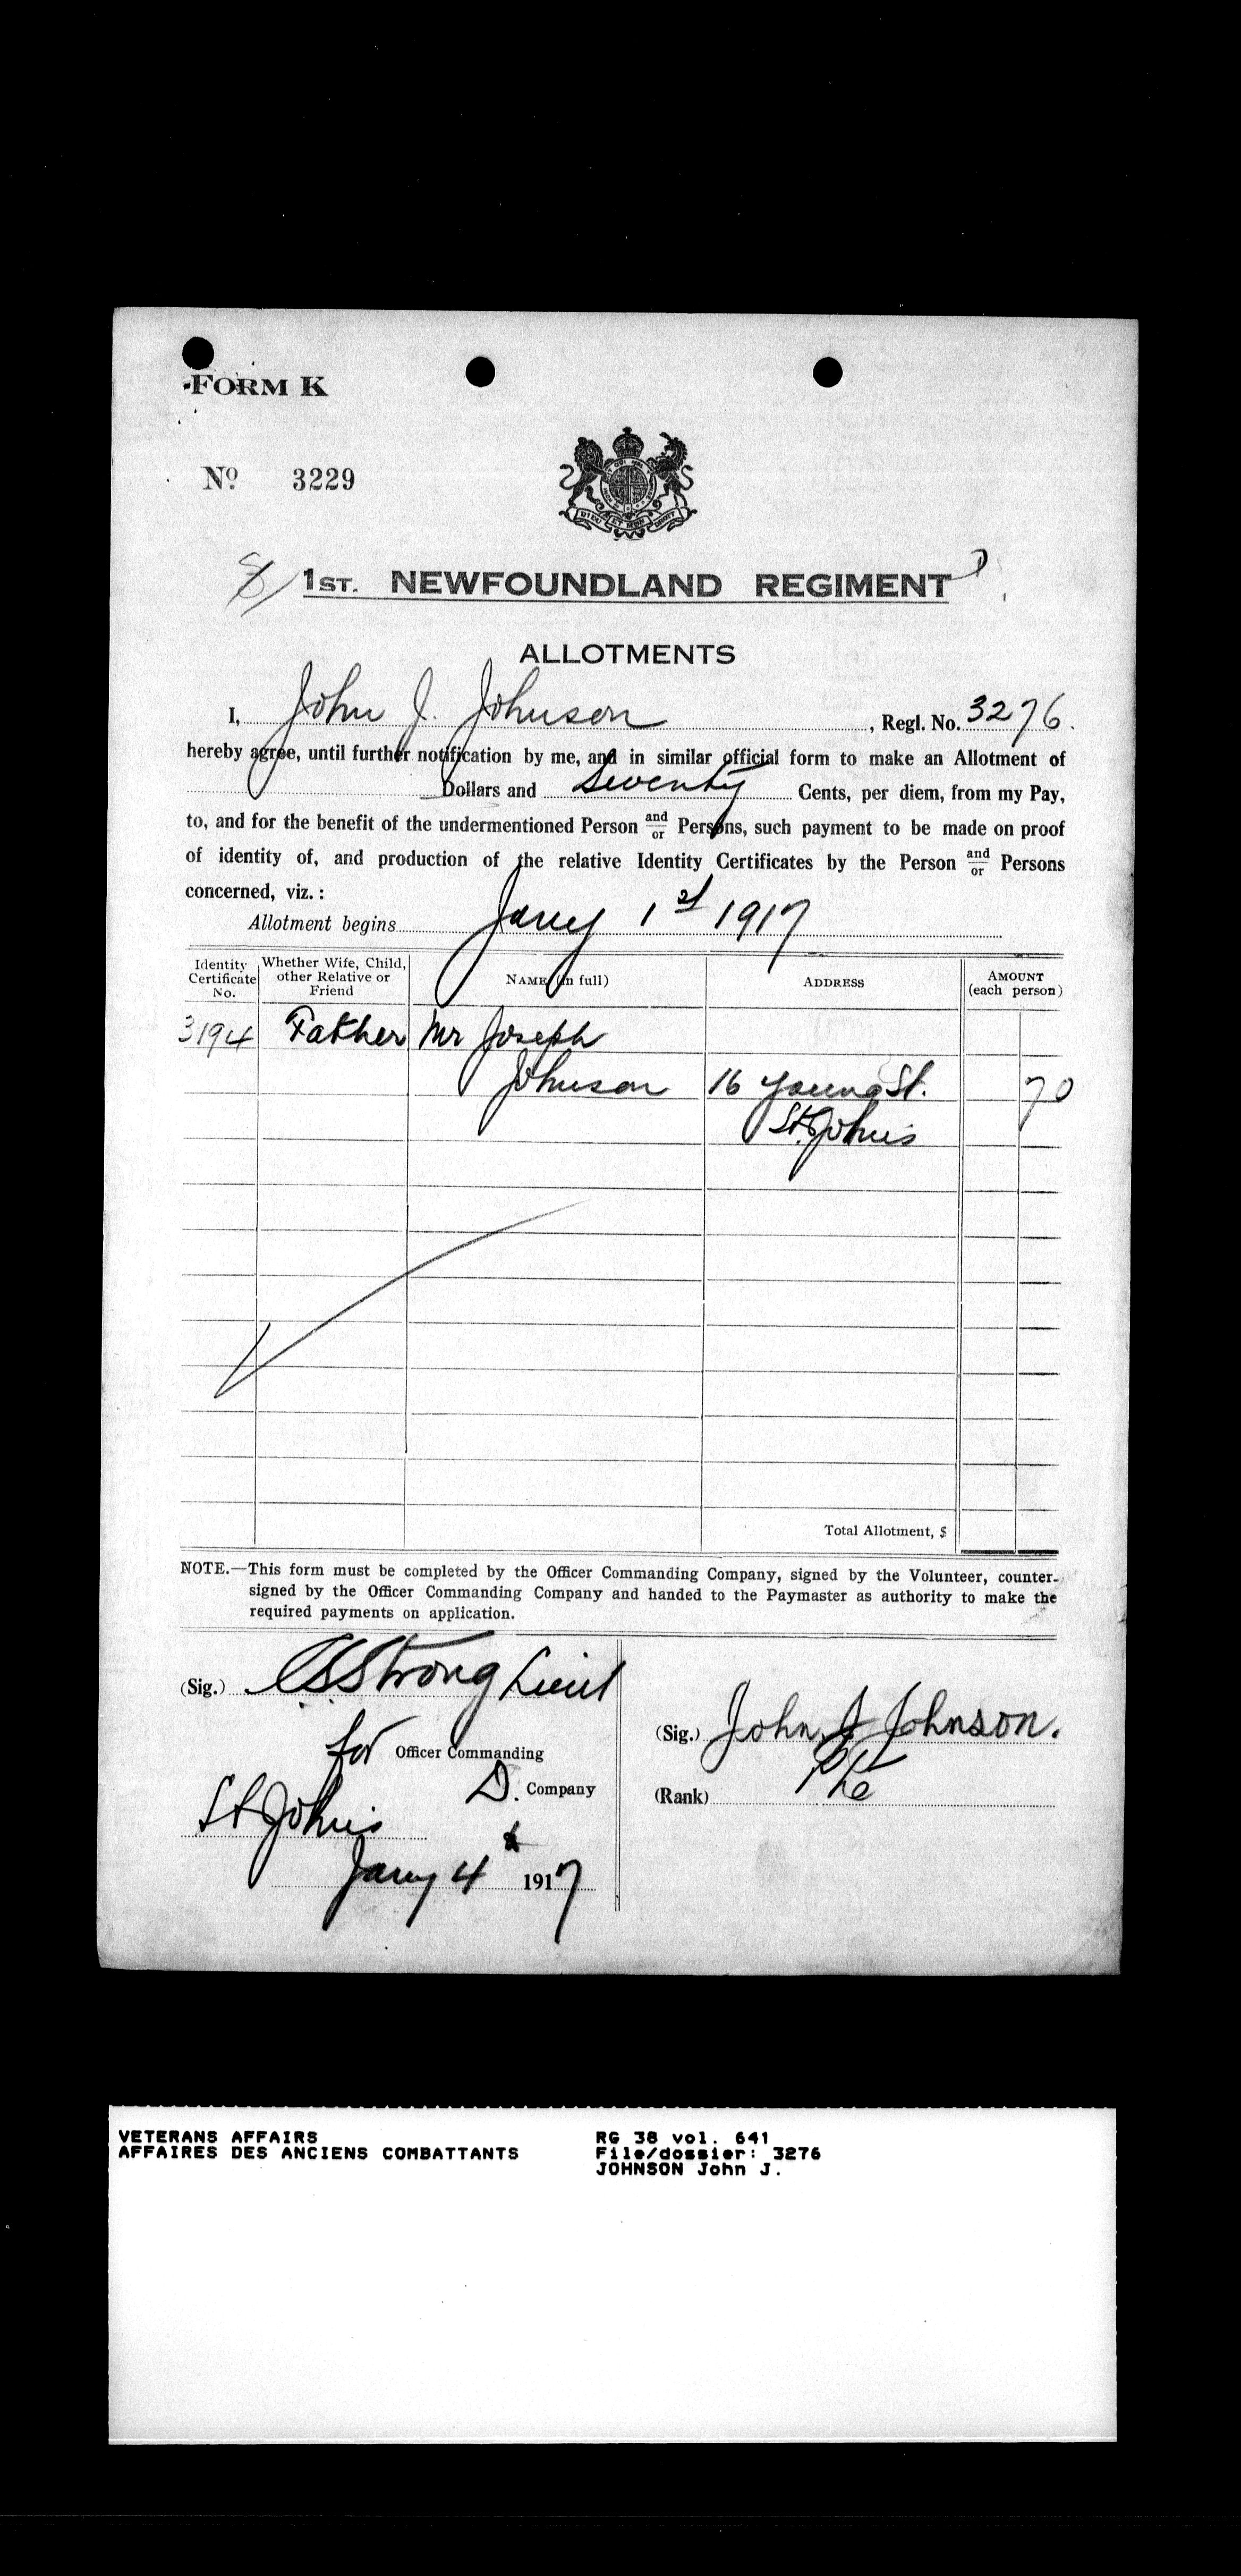 FORM K
No 3229
1ST. NEWFOUNDLAND REGIMENT
ALLOTMENTS
I, John J. Johnson, Regl. No. 3276.
hereby agree, until further notification by me, and in similar official form to make an Allotment of
Dollars and Seventy Cents, per diem, from my Pay,
to, and for the benefit of the undermentioned Person and/or Persons, such payment to be made on proof
of identity of, and production of the relative Identity Certificates by the Person and/or Persons
concerned, viz. :
Allotment begins Jany 1st 1917
Identity Certificate No. Whether Wife, Child, other Relative or Friend NAME (in full) ADDRESS AMOUNT (each person)
3194 Father Mr Joseph
Johnson 16 Young St. 70
St. John's
Total Allotment, $
NOTE.—This form must be completed by the Officer Commanding Company, signed by the Volunteer, counter-
signed by the Officer Commanding Company and handed to the Paymaster as authority to make the
required payments on application.
(Sig.) CSStrong Lieut
for Officer Commanding
D. Company
St John's
Jany 4 1917
(Sig.) John J Johnson.
(Rank) Pte
VETERANS AFFAIRS RG 38 vol. 641
AFFAIRES DES ANCIENS COMBATTANTS File/dossier: 3276
JOHNSON John J.